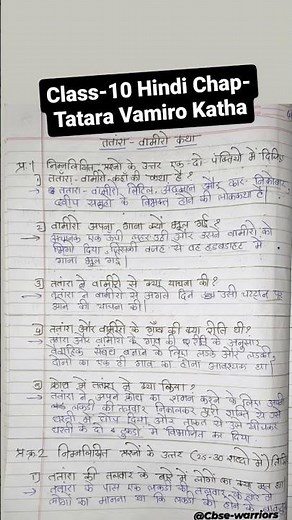 Class-10 Hindi Chap-
Tatara Vamiro Katha
तताँरा - वामीरो कथा
प्र.1 निम्नलिखित प्रश्नों के उत्तर एक-दो पंक्तियों में दिजिए
1) तताँरा-वामीरो कहाँ की कथा है?
→ तताँरा-वामीरो, लिटिल अंदमान और कार-निकोबार
द्वीप समूहों के विभक्त होने की लोककथा है।
2) वामीरो अपना गाना क्यों भूल गई?
अचानक एक ऊँची लहर उठी और उसने वामीरो को
भिगो दिया, जिसकी वजह से वह हड़बड़ाहट में
गाना भूल गई।
3) तताँरा ने वामीरो से क्या याचना की?
→ तताँरा ने वामीरो से अगले दिन उसी चट्टान पर
आने की याचना की।
4) तताँरा और वामीरो के गाँव की क्या रीति थी?
तताँरा और वामीरो के गाँव की रीति के अनुसार,
वैवाहिक संबंध बनाने के लिए लड़के और लड़की
दोनों का एक ही गाँव का होना आवश्यक था।
5) क्रोध में तताँरा ने क्या किया?
→ तताँरा ने अपने क्रोध का शमन करने के लिए अपनी
लकड़ी की तलवार निकालकर पूरी शक्ति से उसे
धरती में घोंप दिया और ताकत से उसे खींचकर
धरती के दो टुकड़ों में विभाजित कर दिया
प्रश्न.2 निम्नलिखित प्रश्नों के उत्तर (25-30 शब्दों में)
1) तताँरा की तलवार के बारे में लोगों का क्या मत था
→ तताँरा के पास एक लकड़ी की तलवार
लोगों का मानना था कि लकड़ी की होने के बावजूद
@Cbse-warriors